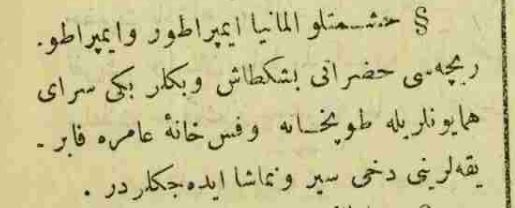 § حشمتلو المانيا ايمپراطور وايمپراطو-
ريچه‌سی حضراتی بشكطاش وبكلر بكی سرای
همايونلريله طوپخانه وفس خانهٔ عامره فابر-
يقه‌لرينی دخی سير وتماشا ايده‌جكلردر .